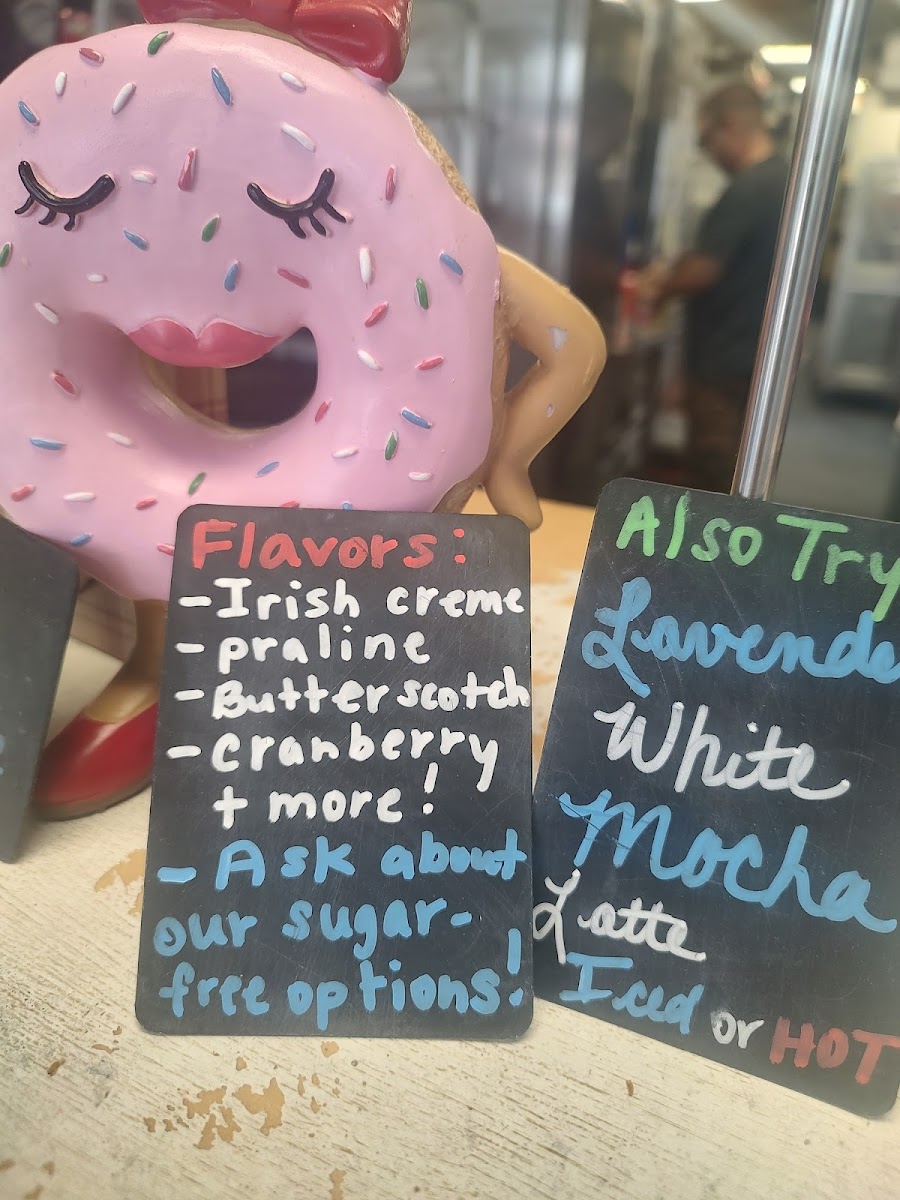 Flavors:
- Irish creme
- praline
- Butterscotch
- cranberry
+ more!
- Ask about
our sugar-
free options!
Also Try
Lavende
White
Mocha
Latte
Iced or HOT